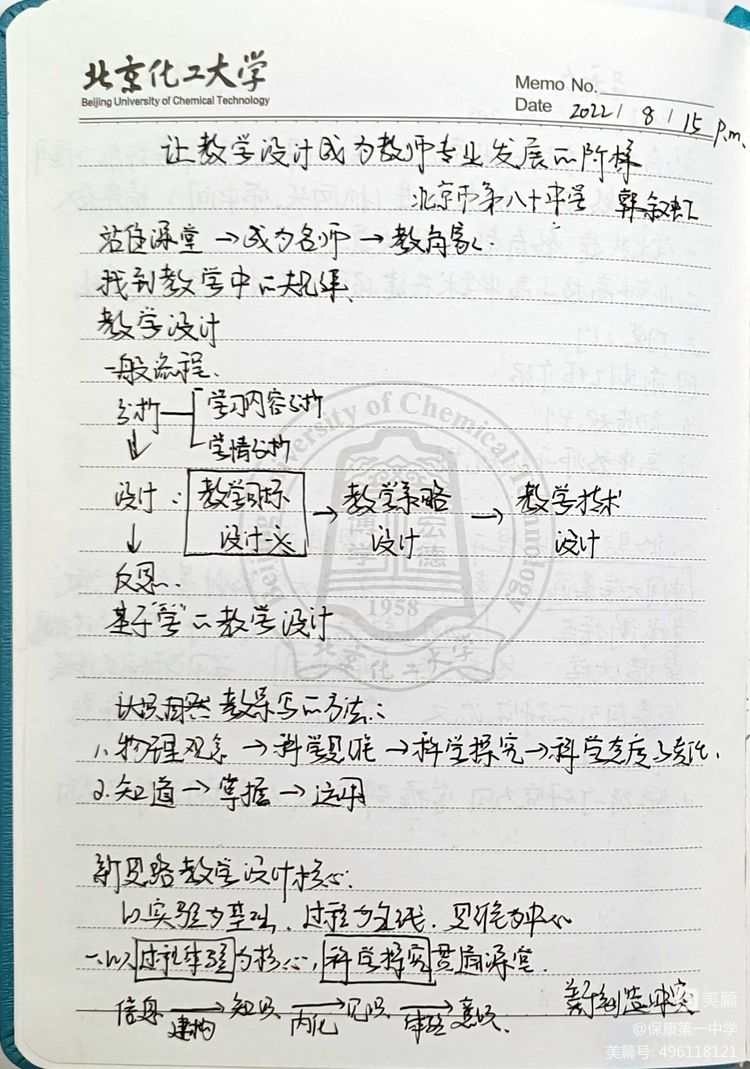 北京化工大学
Beijing University of Chemical Technology
Memo No.
Date 2022/8/15 p.m.
让教学设计成为教师专业发展的阶梯
北京市第八十中学 韩叙虹
站住课堂→成为名师→教育家.
找到教学中的规律.
教学设计
一般流程.
分析 学习内容分析
学情分析
设计: 教学目标设计 → 教学策略设计 → 教学技术设计
反思.
基于"学"的教学设计
University of Chemical Technology
博学 宏德
1958
北京化工大学
1.物理观念→科学思维→科学探究→科学态度与责任.
2.知道→掌握→运用
新思路教学设计核心.
以实验为基础.过程为主线.思维为中心
一.以过程体验为核心,科学探究贯通课堂.
信息 建构→ 知识 内化→ 见识 体验→ 意识.
善于制造冲突
美篇
@保康第一中学
美篇号: 496118121